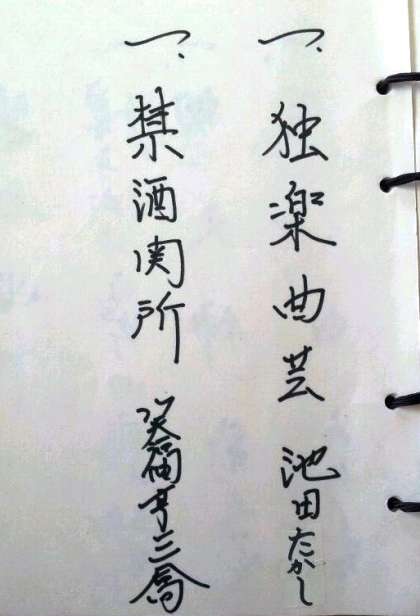 一、独楽曲芸 池田たかし
一、禁酒関所 笑福亭三喬